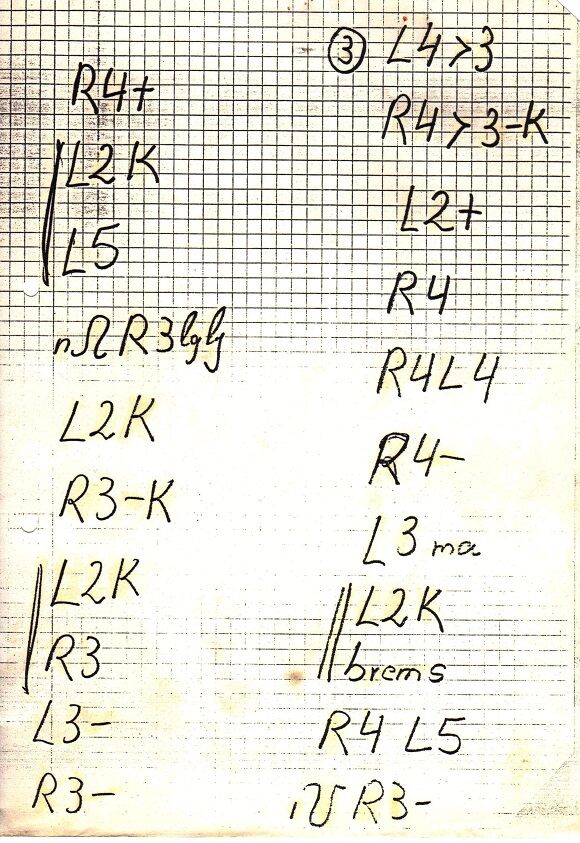 R4+
L2K
L5
R3lglg
L2K
R3-K
L2K
R3
L3-
R3-
③ L4>3
R4>3-K
L2+
R4
R4L4
R4-
L3 ma
L2K
brems
R4 L5
R3-